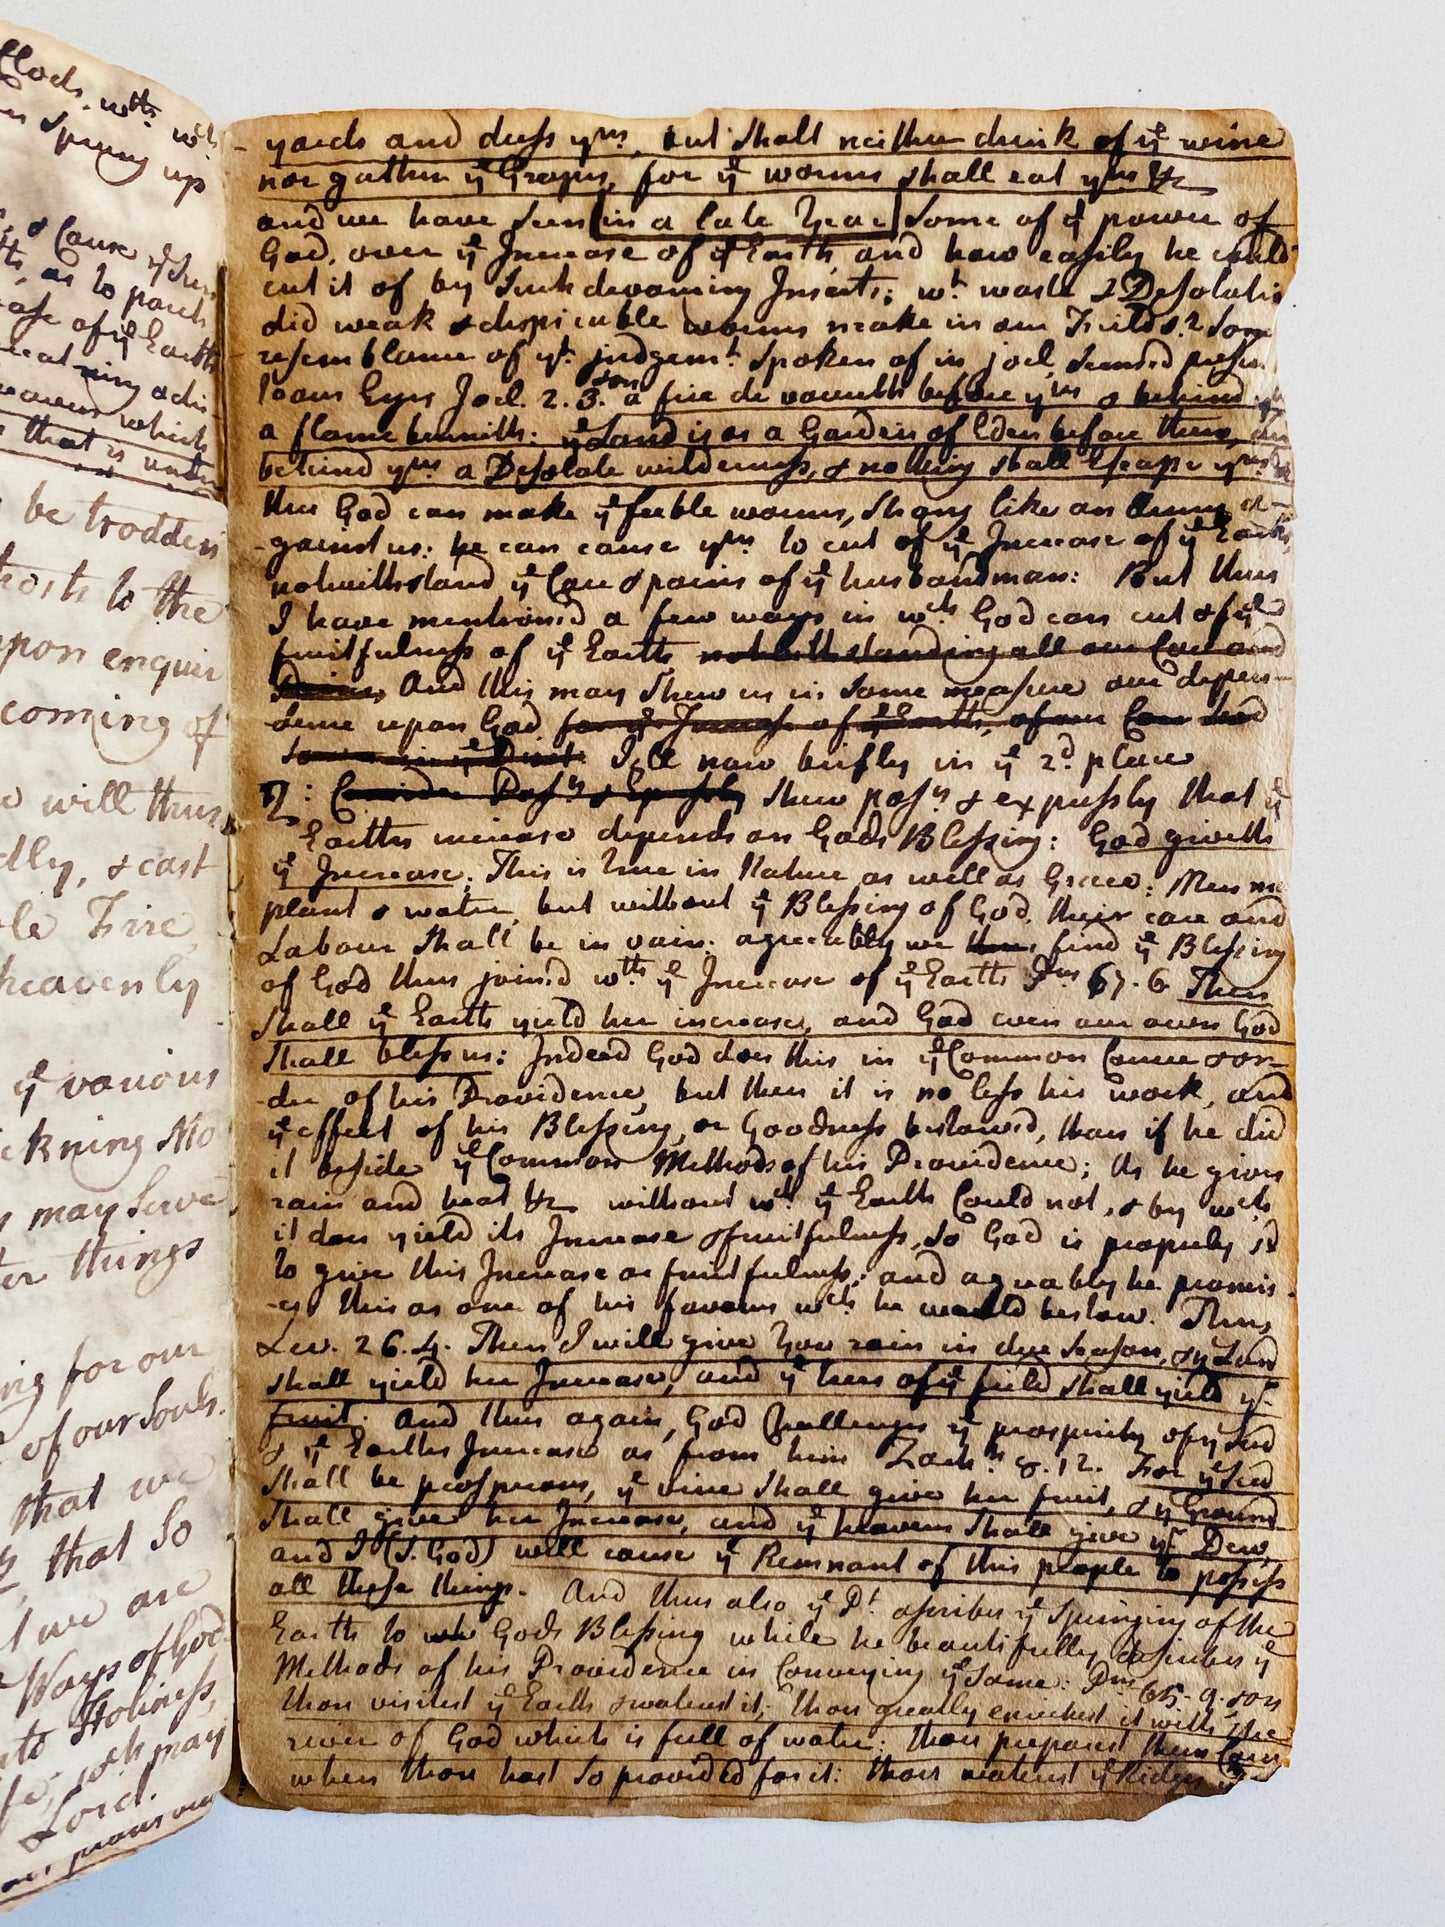 Clods. wth. wch
Spring up
& Cause ye Sun
as to parch
ease of ye Earth
heavens which
that is unto
be trodden
to the
upon enquir
coming of
will thus
dly, & cast
le Fire
heavenly
ye various
kning Mo
may Serve
ter things
ing for our
of our Souls.
that we
that So
we are
Ways of God
nto Holiness,
wch may
Lord.
- yards and dress ym, but shall neither drink of ye wine
nor gather ye Grapes, for ye worms shall eat ym &c
and we have seen [in a late Year] some of ye power of
God, over ye Increase of ye Earth, and how easily he could
cut it of by Such devouring Insects; wt waste & Desolatio
did weak & despicable worms make in our Fields? Some
resemblance of yt judgemt Spoken of in joel, seemed presen
to our Eyes Joel. 2. 3. a fire devoureth before ym & behind ym
a flame burneth: ye Land is as a Garden of Eden before them, and
behind ym a Desolate wilderness, & nothing shall Escape ym
thus God can make ye feeble worms, Strong like an Army a-
-gainst us: he can cause ym to cut of ye Increase of ye Earth,
notwithstand ye Care & pains of ye husbandman: But thus
I have mention'd a few ways in wch God can cut of ye
fruitfulness of ye Earth, notwithstanding all our Care and
Pains And this may Shew us in Some measure our depen-
dence upon God for ye Increase of ye Earth, of our Seed
Sown in ye Dust. I'll now briefly in ye 2d place
2: Consider Posly & Expressly Shew posly & expressly that ye
Earths increase depends on Gods Blessing: God giveth
ye Increase. This is true in Nature as well as Grace: Men ma
plant & water, but without ye Blessing of God, their care and
Labour Shall be in vain: agreeably we thus find ye Blessing
of God thus join'd wth ye Increase of ye Earth Psm 67. 6 Then
Shall ye Earth yield her increase, and God even our own God
shall bless us: Indeed God does this in ye Common Course & or-
-der of his Providence, but then it is no less his work, and
ye effect of his Blessing, or Goodness bestowed, than if he did
it beside ye Common Methods of his Providence; As he gives
rain and heat &c without wch ye Earth Could not, & by wch
it does yield its Increase & fruitfulness, so God is properly sd
to give this Increase or fruitfulness: and agreably he promis-
-es this as one of his favours wch he would bestow. Thus
Lev. 26. 4. Then I will give You rain in due Season, & ye Land
shall yield her Increase, and ye trees of ye field shall yield yr
fruit. And thus again, God Challenges ye prosperity of ye Seed
& ye Earths Increase as from him Zech. 8. 12. For ye Seed
shall be prosperous, ye vine Shall give her fruit, & ye Ground
Shall give her Increase, and ye heavens Shall give yr Dew,
and I (S. God) will cause ye Remnant of this people to possess
all these things. And thus also ye Pt ascribes ye Springing of the
Earth to Gods Blessing while he beautifully describes ye
Methods of his Providence in Conveying ye Same: Psm 65. 9. & on
thou visitest ye Earth & waterest it; thou greatly enrichest it with the
river of God which is full of water: thou preparest them Corn
when thou hast So provided for it: thou waterest ye Ridges